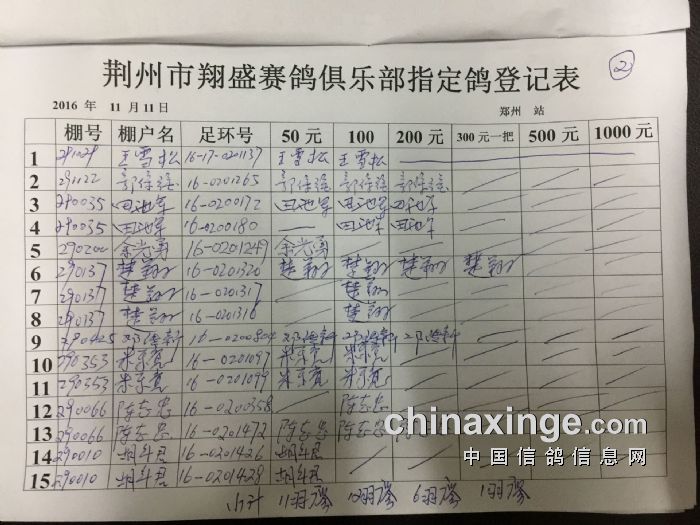 荆州市翔盛赛鸽俱乐部指定鸽登记表 ②
2016 年 11 月 11 日 郑州 站
棚号 棚户名 足环号 50 元 100 200 元 300 元一把 500 元 1000 元
1 291029 王雪松 16-17-0201137 王雪松 王雪松
2 291122 16-0201265
3 290035 田池军 16-0200172 田池军 田池军 田池军
4 290035 田池军 16-0200180 — 田池军 田池军
5 290200 余光勇 16-0201249 余光勇
6 290137 楚翔 16-0201320 楚翔 楚翔 楚翔 楚翔
7 290137 楚翔 16-0201317 楚翔
8 290137 楚翔 16-0201316 楚翔
9 290425 16-0200804
10 290353 朱宗亮 16-0201097 朱宗亮 朱宗亮
11 290353 朱宗亮 16-0201099 朱宗亮 朱宗亮
12 290066 陈志忠 16-0200358 陈志忠
13 290066 陈志忠 16-0201472 陈志忠 陈志忠
14 290010 胡斗君 16-0201426 胡斗君
15 290010 胡斗君 16-0201428 胡斗君
小计 11羽 12羽 6羽 1羽
chinaxinge.com
中国信鸽信息网